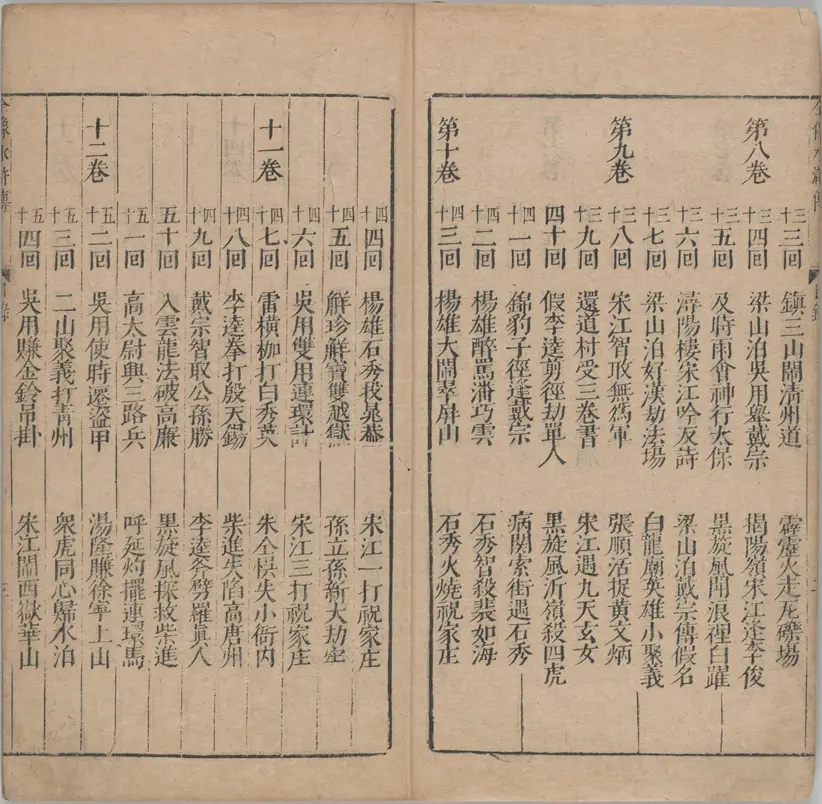 三十三回 鎮三山鬧清州道 霹靂火走瓦礫場
第八卷 三十四回 梁山泊吳用舉戴宗 揭陽嶺宋江逢李俊
三十五回 及時雨會神行太保 黑旋風鬧浪裡白躍
三十六回 潯陽樓宋江吟反詩 梁山泊戴宗傳假名
三十七回 梁山泊好漢劫法場 白龍廟英雄小聚義
第九卷 三十八回 宋江智取無爲軍 張順活捉黃文炳
三十九回 還道村受三卷書 宋江遇九天玄女
四十回 假李逵剪徑劫單人 黑旋風沂嶺殺四虎
四十一回 錦豹子徑逢戴宗 病関索街遇石秀
四十二回 楊雄醉罵潘巧雲 石秀智殺裴如海
第十卷 四十三回 楊雄大鬧翠屏山 石秀火燒祝家庄
四十四回 楊雄石秀投晁蓋 宋江一打祝家庄
四十五回 觧珍觧寶雙越獄 孫立孫新大劫牢
四十六回 吳用雙用連環計 宋江三打祝家庄
十一卷 四十七回 雷橫枷打白秀英 朱仝悞失小衙内
四十八回 李逵拳打殷天錫 柴進失陷高唐州
四十九回 戴宗智取公孫勝 李逵斧劈羅真人
五十回 入雲龍法破高廉 黑旋風探救柴進
五十一回 高太尉興三路兵 呼延灼擺連環馬
十二卷 五十二回 吳用使時遷盜甲 湯隆賺徐寧上山
五十三回 二山聚義打青州 衆虎同心歸水泊
五十四回 吳用賺金鈴吊掛 宋江鬧西嶽華山